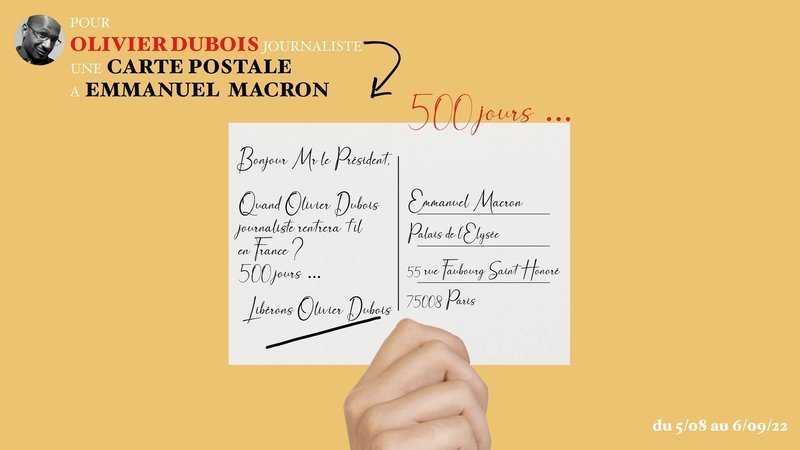 POUR
OLIVIER DUBOIS JOURNALISTE
UNE CARTE POSTALE
A EMMANUEL MACRON
500 jours ...
Bonjour Mr le Président,
Quand Olivier Dubois
journaliste rentrera t'il
en France ?
500 jours ...
Libérons Olivier Dubois
Emmanuel Macron
Palais de l'Elysée
55 rue Faubourg Saint Honoré
75008 Paris
du 5/08 au 6/09/22